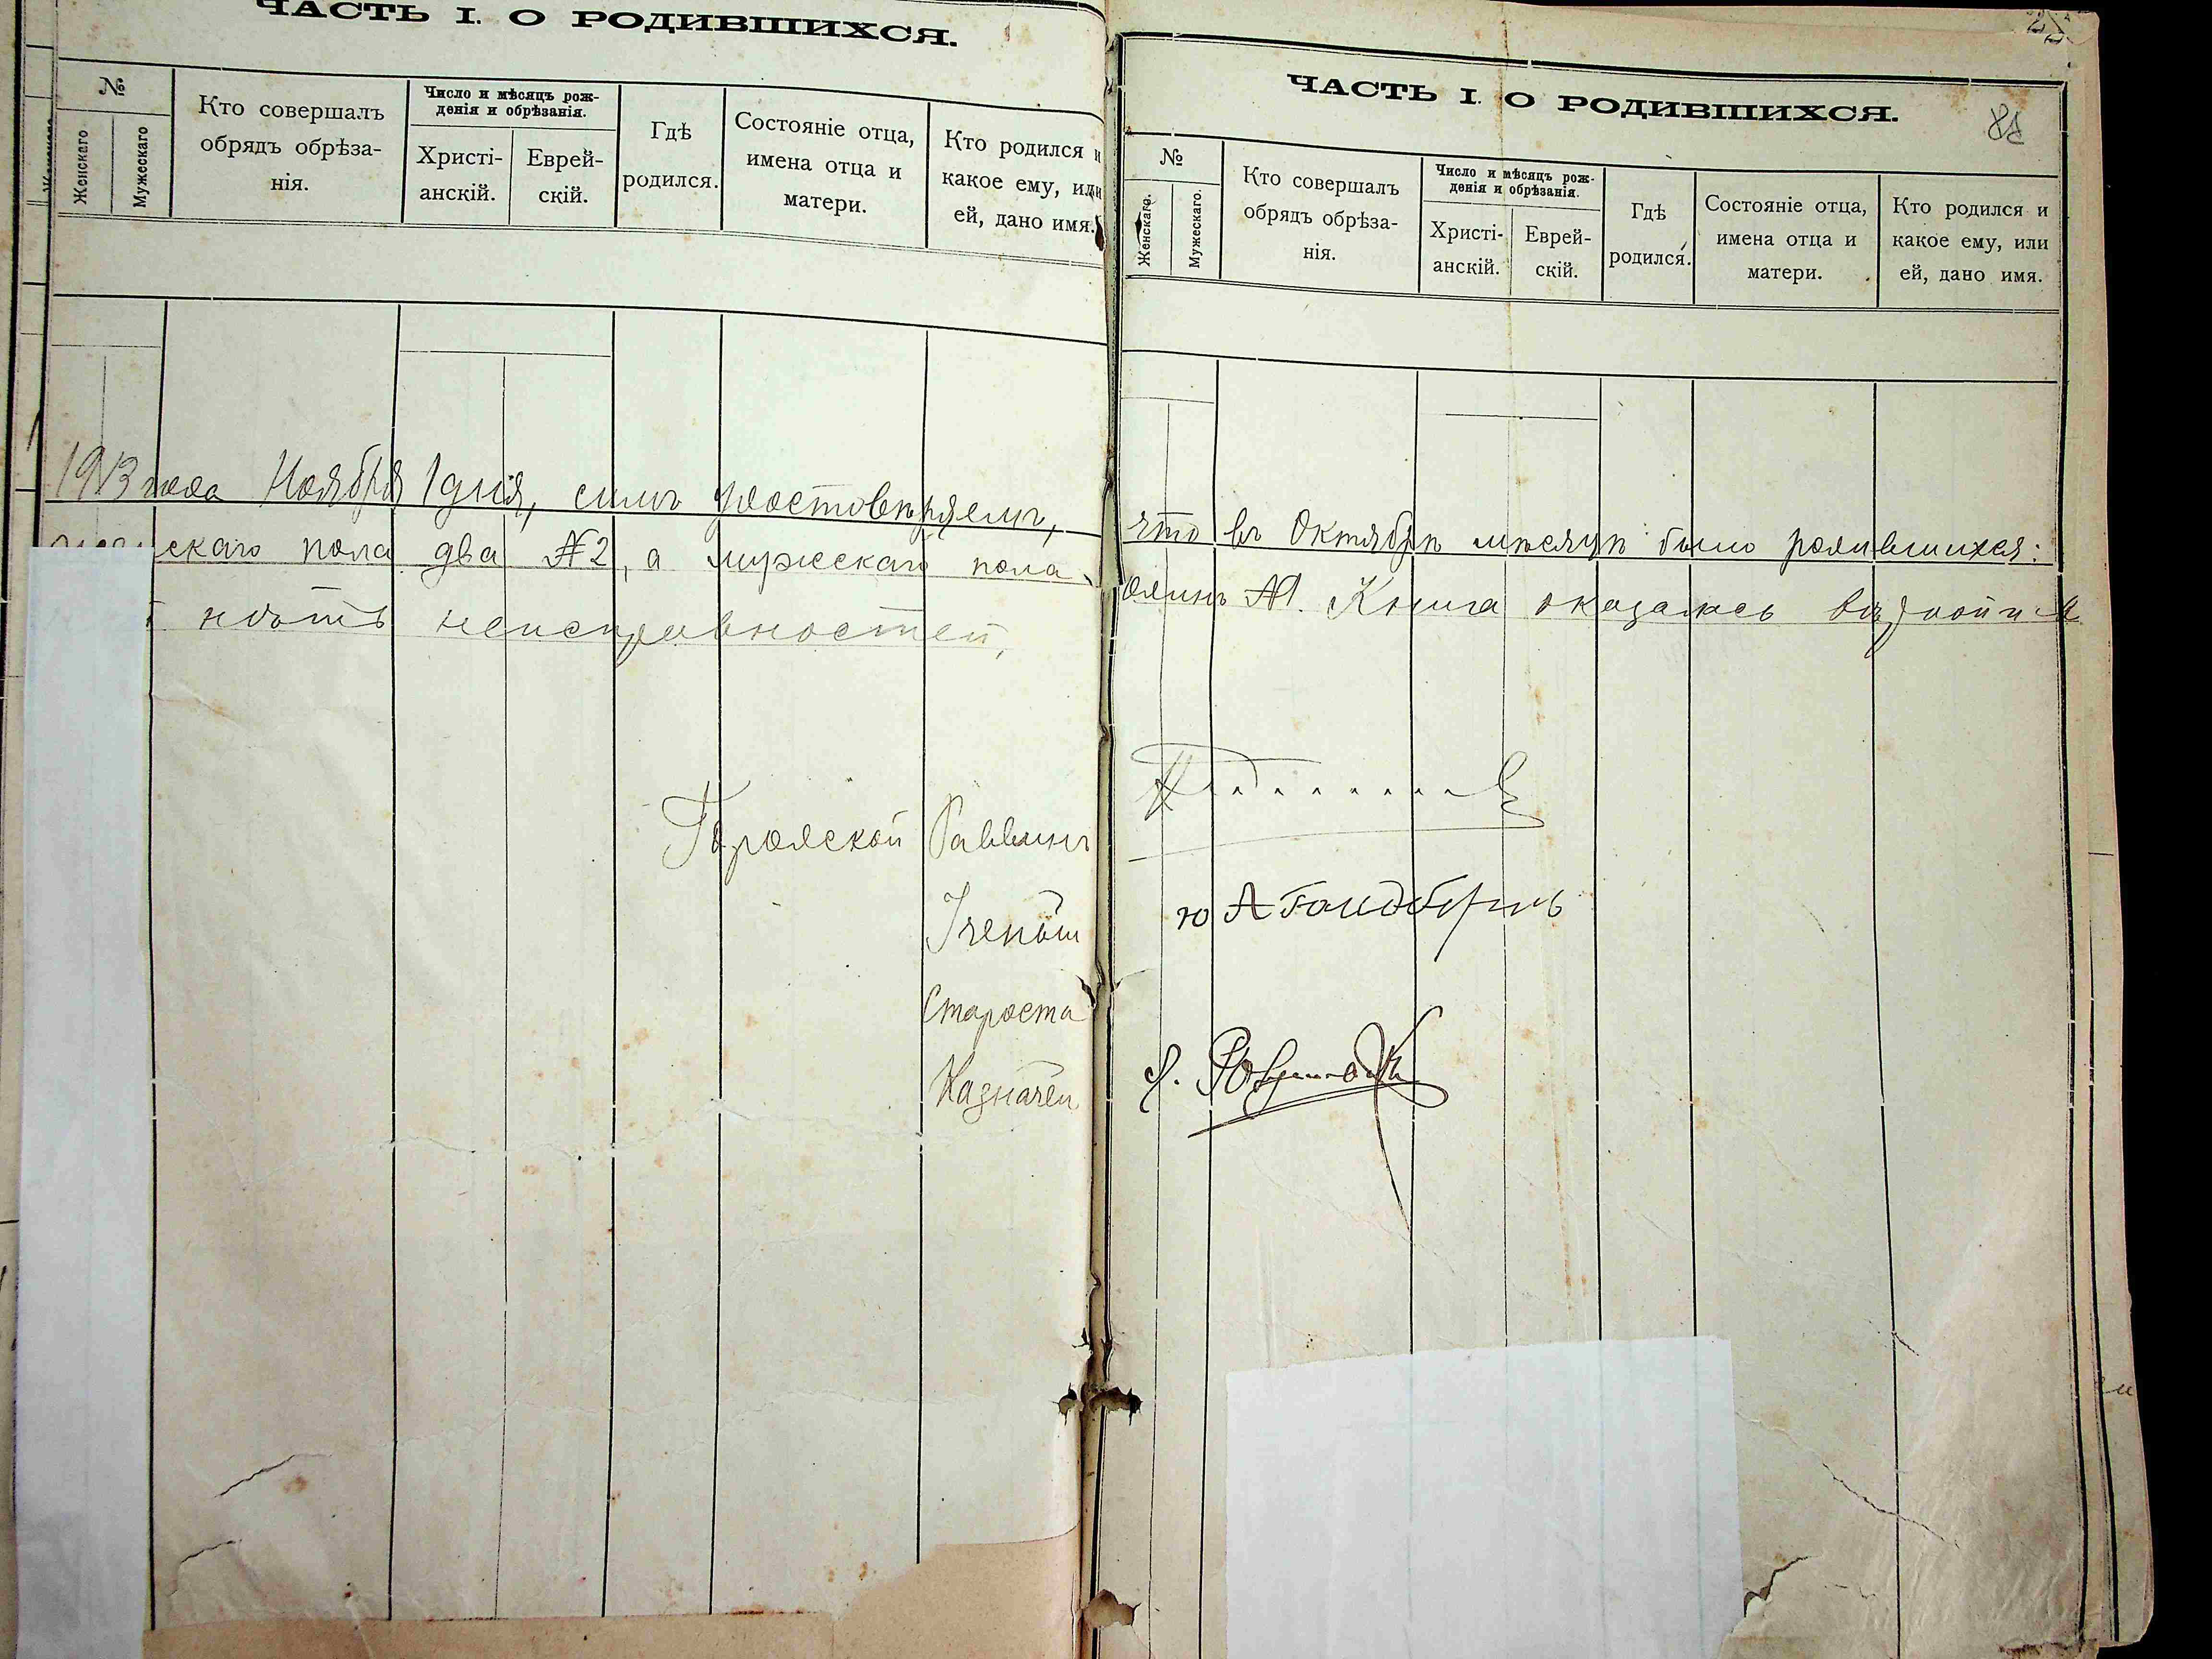 ЧАСТЬ I. О РОДИВШИХСЯ.
№
Женскаго
Мужескаго
Кто совершалъ
обрядъ обрѣза-
нія.
Число и мѣсяцъ рож-
денія и обрѣзанія.
Христі-
анскій.
Еврей-
скій.
Гдѣ
родился.
Состояніе отца,
имена отца и
матери.
Кто родился и
какое ему, или
ей, дано имя.
1913 года Ноября 1 дня, симъ удостовѣряемъ,
скаго пола два №2, а мужескаго пола
нѣтъ неисправностей,
Городской Раввинъ
Ученый
Староста
Казначей
ЧАСТЬ I. О РОДИВШИХСЯ.
№
Женскаго.
Мужескаго.
Кто совершалъ
обрядъ обрѣза-
нія.
Число и мѣсяцъ рож-
денія и обрѣзанія.
Христі-
анскій.
Еврей-
скій.
Гдѣ
родился.
Состояніе отца,
имена отца и
матери.
Кто родился и
какое ему, или
ей, дано имя.
что въ Октябрѣ мѣсяцѣ было родившихся:
одинъ №1. Книга оказалась